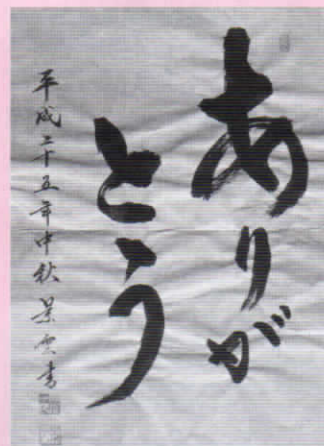 ありが
とう
平成二十五年中秋 景雲書